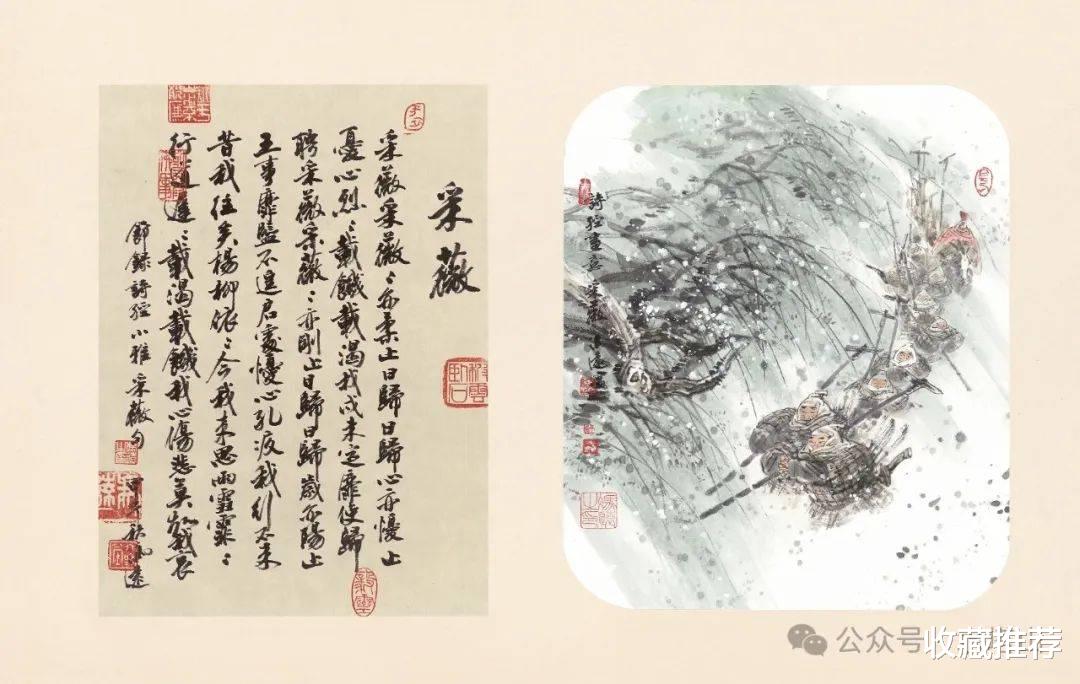 采薇
采薇采薇々亦柔止曰歸曰歸心亦憂止
憂心烈々載饑載渴我戍未定靡使歸
聘采薇采薇々亦剛止曰歸曰歸歲亦陽止
王事靡盬不遑启處憂心孔疚我行不來
昔我往矣楊柳依々今我來思雨雪霏々
行道遲々載渴載饑我心傷悲莫知我哀
節錄詩經小雅采薇句
詩經畫意采薇
公众号
收藏推荐